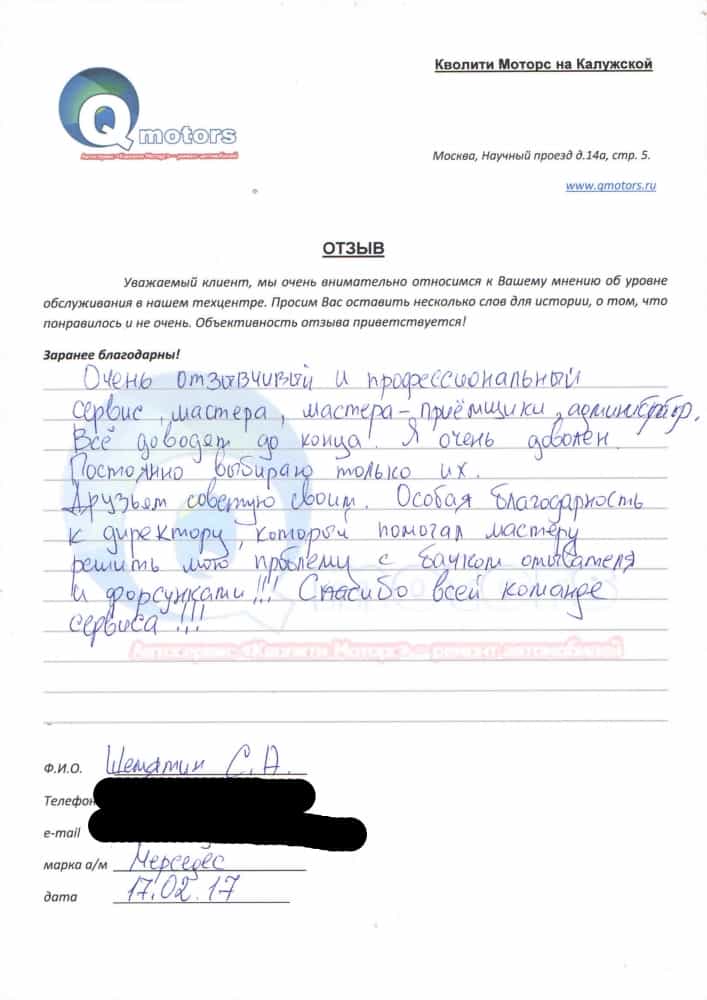 Кволити Моторс на Калужской
Q motors
Автосервис «Кволити Моторс» – ремонт автомобилей
Москва, Научный проезд д.14а, стр. 5.
www.qmotors.ru
ОТЗЫВ
Уважаемый клиент, мы очень внимательно относимся к Вашему мнению об уровне
обслуживания в нашем техцентре. Просим Вас оставить несколько слов для истории, о том, что
понравилось и не очень. Объективность отзыва приветствуется!
Заранее благодарны!
Очень отзывчивый и профессиональный
сервис, мастера, мастера-приёмщики, администратор.
Всё доводят до конца. Я очень доволен.
Постоянно выбираю только их.
Друзьям советую своим. Особая благодарность
к директору, который помогал мастеру
решить мою проблему с бачком омывателя
и форсунками!!! Спасибо всей команде
сервиса!!!
Автосервис «Кволити Моторс» – ремонт автомобилей
Ф.И.О. С.А.
Телефон
e-mail
марка а/м Мерседес
дата 17.02.17